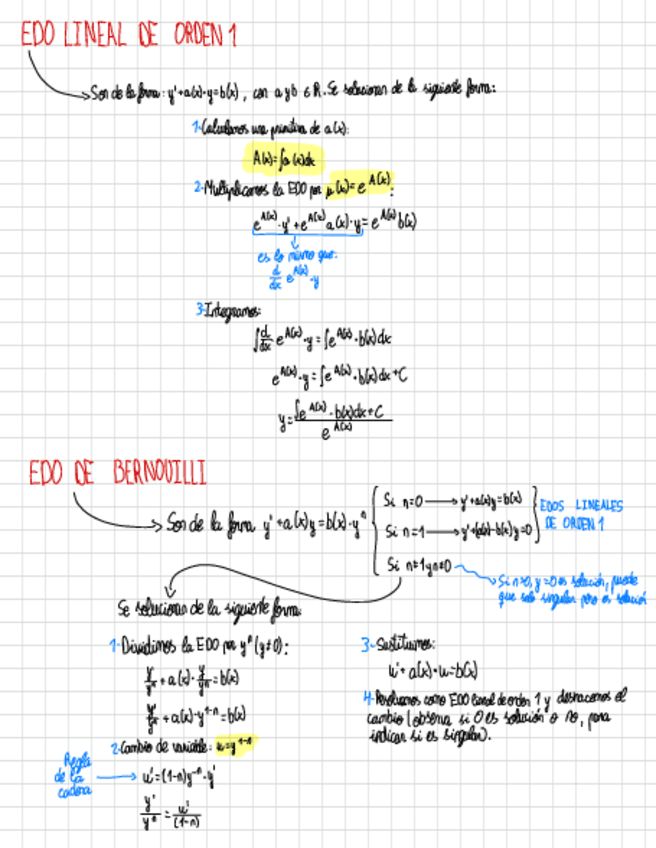 EDO LINEAL DE ORDEN 1
Son de la forma: y'+a(x)·y=b(x), con a y b ∈ R. Se solucionan de la siguiente forma:
1-Calculamos una primitiva de a(x):
A(x)=∫a(x)dx
2-Multiplicamos la EDO por μ(x)=e^A(x):
e^A(x)·y'+e^A(x)a(x)·y=e^A(x)b(x)
es lo mismo que:
d/dx e^A(x)·y
3-Integramos:
∫d/dx e^A(x)·y=∫e^A(x)·b(x)dx
e^A(x)·y=∫e^A(x)·b(x)dx+C
y=∫e^A(x)·b(x)dx+C / e^A(x)
EDO DE BERNOUILLI
Son de la forma y'+a(x)y=b(x)·y^n
Si n=0 → y'+a(x)y=b(x)
Si n=1 → y'+(a(x)-b(x))y=0
EDOS LINEALES
DE ORDEN 1
Si n≠1 y n≠0
Si n>0, y=0 es solución, puede
que sea singular pero es solución
Se solucionan de la siguiente forma:
1-Dividimos la EDO por y^n (y≠0):
y'/y^n+a(x)·y/y^n=b(x)
y'/y^n+a(x)·y^1-n=b(x)
2-Cambio de variable: u=y^1-n
Regla
de la
cadena
u'=(1-n)y^-n·y'
y'/y^n=u'/(1-n)
3-Sustituimos:
u'+a(x)·u=b(x)
4-Resolvemos como EDO lineal de orden 1 y deshacemos el
cambio (observa si 0 es solución o no, para
indicar si es singular).